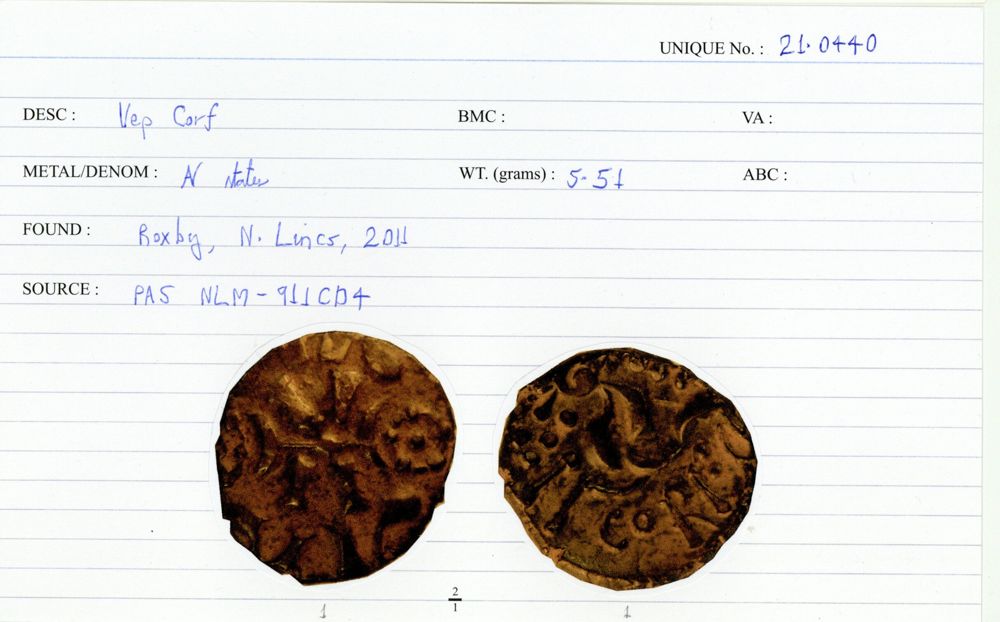 UNIQUE No. : 21.0440
DESC : Vep Corf BMC : VA :
METAL/DENOM : N stater WT. (grams) : 5.51 ABC :
FOUND : Roxby, N. Lincs, 2011
SOURCE : PAS NLM-911CD4
2
1
1 1